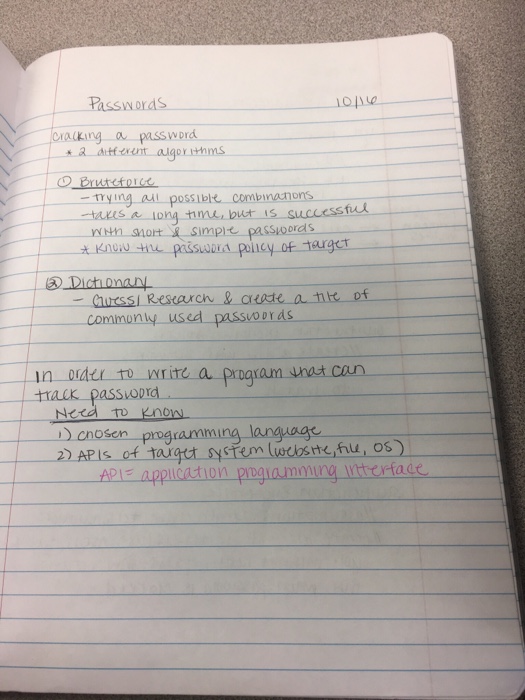 Passwords 10/16
cracking a password
* 2 different algorithms
① Bruteforce
- trying all possible combinations
- takes a long time, but is successful
with short & simple passwords
* Know the password policy of target
② Dictionary
- Guess/Research & create a file of
commonly used passwords
In order to write a program that can
track password.
Need to know
1) chosen programming language
2) APIs of target system (website, file, OS)
API = application programming interface